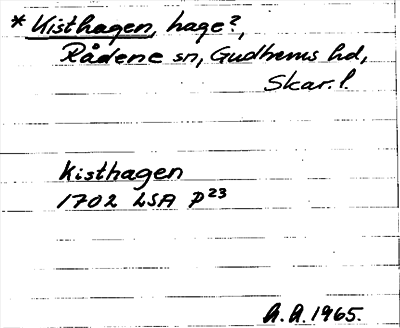 * Kisthagen, hage?,
Rådene sn, Gudhems hd,
Skar. l.
Kisthagen
1702 LSA P23
A.A. 1965.